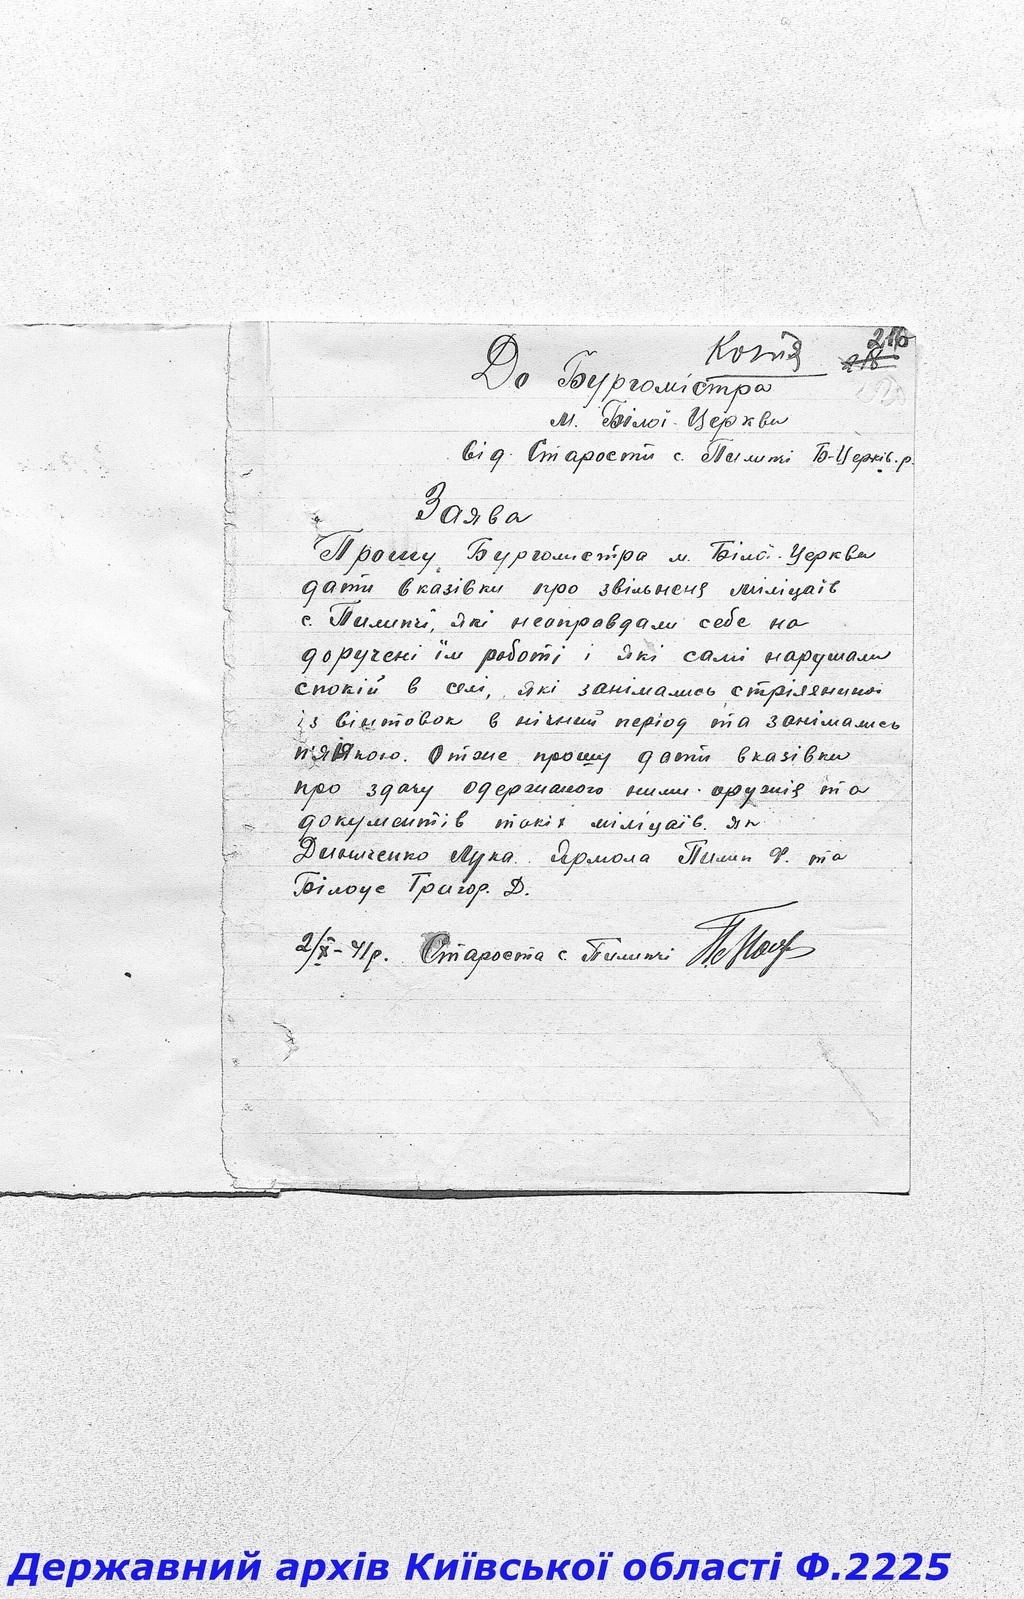 Копія
216
До Бургомістра
м. Білої-Церкви
від Старости с. Пилипчі Б-Церків. р.
Заява
Прошу Бургомистра м. Білої-Церкви
дати вказівки про звільненя міліцаів
с. Пилипчі, які неоправдали себе на
доручені їм роботі і які самі нарушали
спокій в селі, які занімались стріляниної
із вінтовок в нічний період та занімались
п'янкою. Отже прошу дати вказівки
про здачу одержаного ними оружія та
документів таких міліцаїв. як
Лука. Ярмола Пилип Ф. та
Білоус Григор. Д.
2/X-41р. Староста с. Пилипчі
Державний архів Київської області Ф.2225